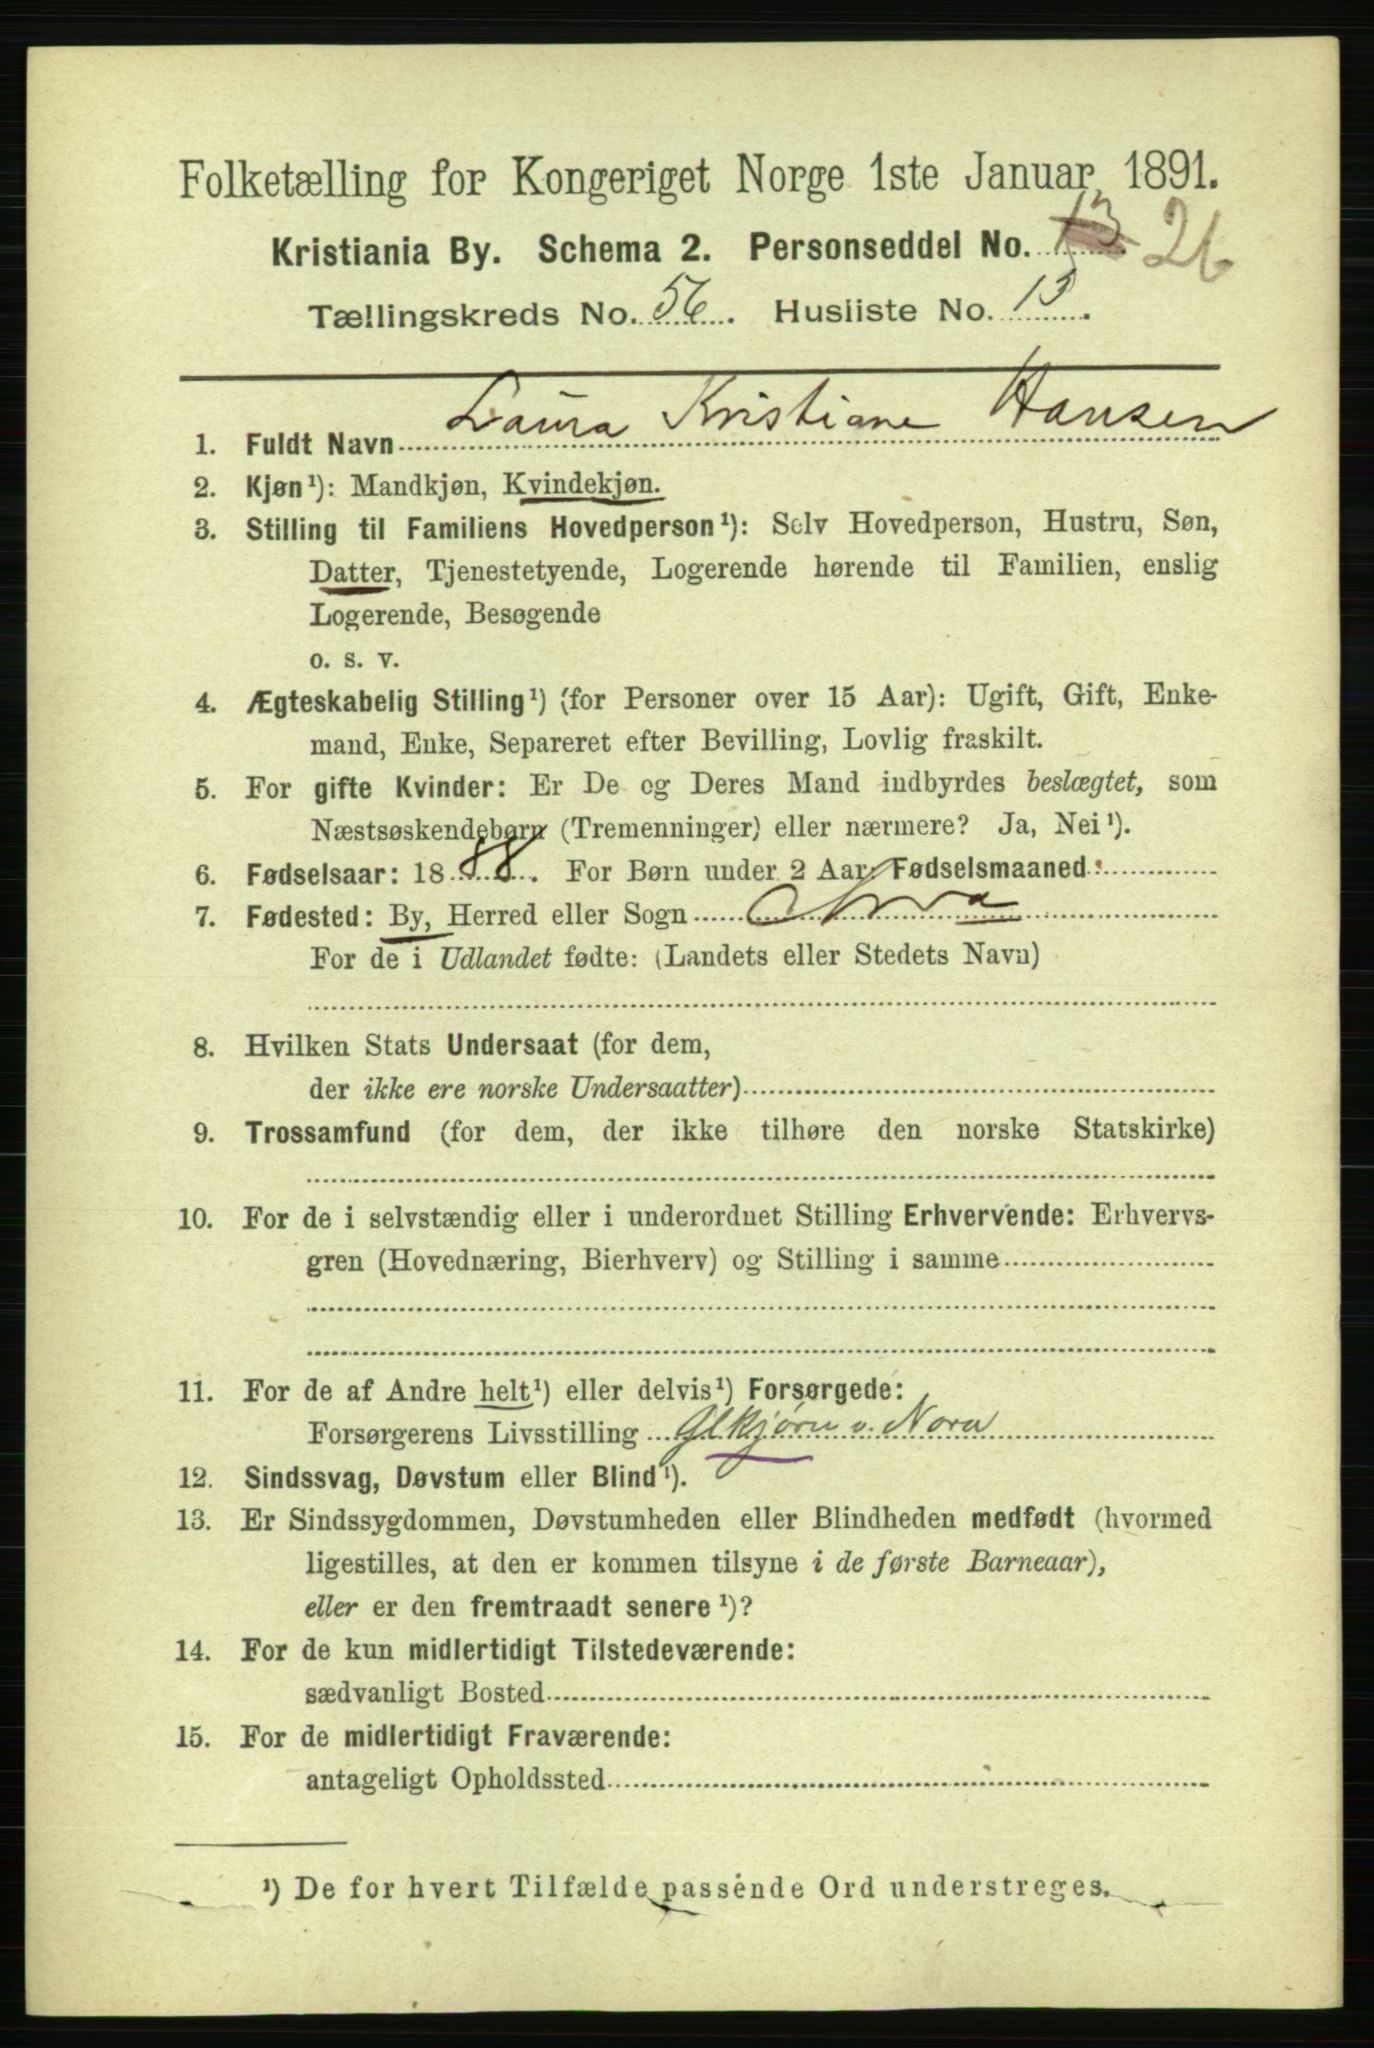 Folketælling for Kongeriget Norge 1ste Januar 1891.
Kristiania By. Schema 2. Personseddel No. 13 26
Tællingskreds No. 56. Husliste No. 13.
1. Fuldt Navn Laura Kristiane Hansen
2. Kjøn¹): Mandkjøn, Kvindekjøn.
3. Stilling til Familiens Hovedperson¹): Selv Hovedperson, Hustru, Søn,
Datter, Tjenestetyende, Logerende hørende til Familien, enslig
Logerende, Besøgende
o. s. v.
4. Ægteskabelig Stilling¹) (for Personer over 15 Aar): Ugift, Gift, Enke-
mand, Enke, Separeret efter Bevilling, Lovlig fraskilt.
5. For gifte Kvinder: Er De og Deres Mand indbyrdes beslægtet, som
Næstsøskendebørn (Tremenninger) eller nærmere? Ja, Nei¹).
6. Fødselsaar: 1888. For Børn under 2 Aar: Fødselsmaaned:
7. Fødested: By, Herred eller Sogn Chra
For de i Udlandet fødte: (Landets eller Stedets Navn)
8. Hvilken Stats Undersaat (for dem,
der ikke ere norske Undersaatter)
9. Trossamfund (for dem, der ikke tilhøre den norske Statskirke)
10. For de i selvstændig eller i underordnet Stilling Erhvervende: Erhvervs-
gren (Hovednæring, Bierhverv) og Stilling i samme
11. For de af Andre helt¹) eller delvis¹) Forsørgede:
Forsørgerens Livsstilling Glkjørn v. Nora
12. Sindssvag, Døvstum eller Blind¹).
13. Er Sindssygdommen, Døvstumheden eller Blindheden medfødt (hvormed
ligestilles, at den er kommen tilsyne i de første Barneaar),
eller er den fremtraadt senere¹)?
14. For de kun midlertidigt Tilstedeværende:
sædvanligt Bosted
15. For de midlertidigt Fraværende:
antageligt Opholdssted
¹) De for hvert Tilfælde passende Ord understreges.